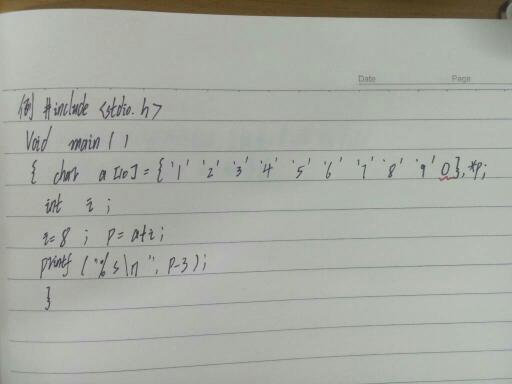 Date Page
例 #include <stdio.h>
void main ( )
{ char a [10] = { '1' '2' '3' '4' '5' '6' '7' '8' '9' 0 }, *p;
int i ;
i=8 ; p=a+i ;
printf ("%s\n", p-3);
}